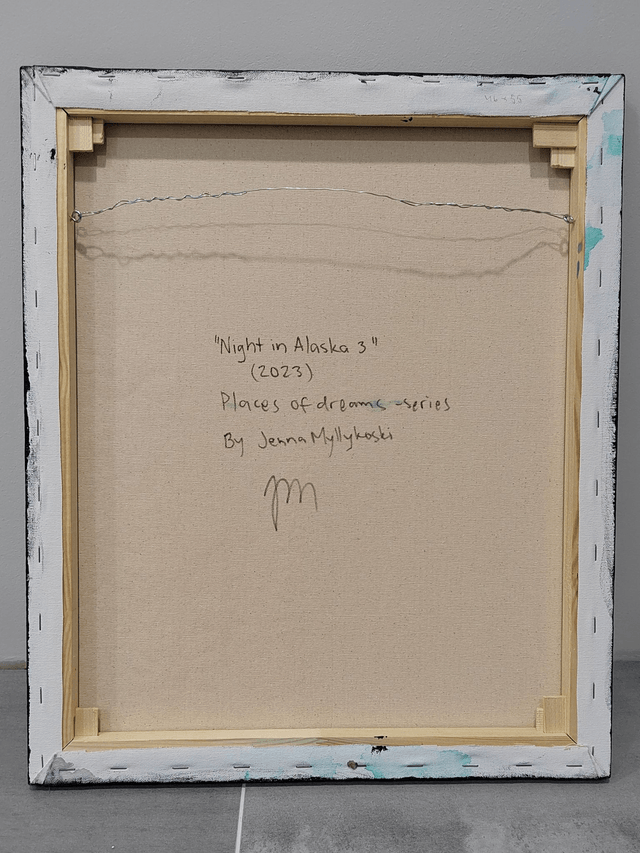 46×55
"Night in Alaska 3"
(2023)
Places of dreams -series
By Jenna Myllykoski
JM